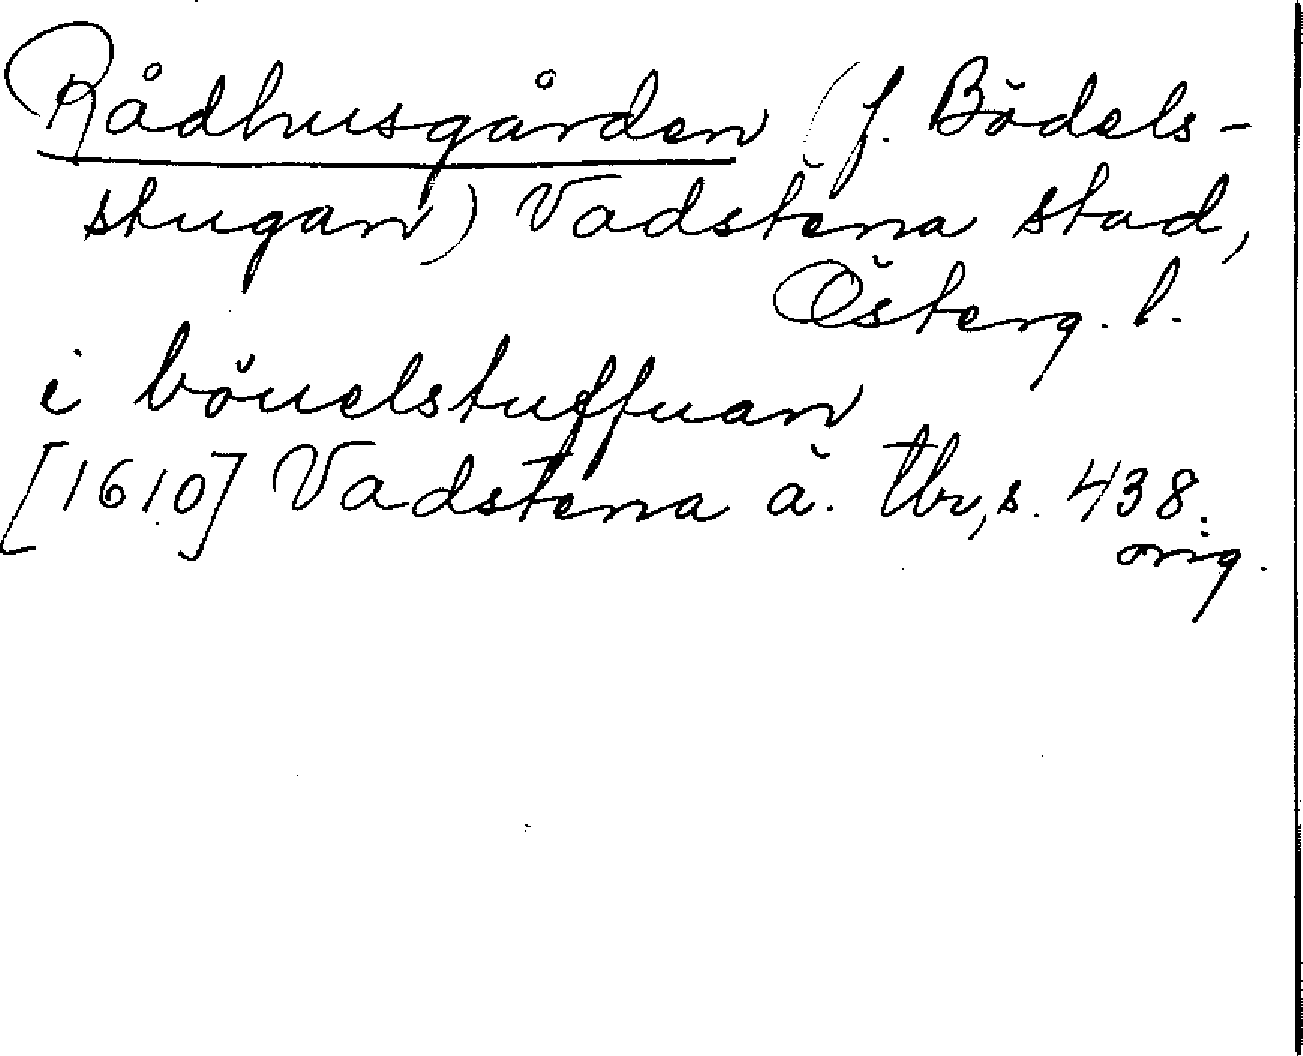 Rådhusgården (f. Bödels-
stugan) Vadstena stad,
Österg. l.
i böuelstuffuan
[1610] Vadstena ä. tbr, s. 438.
orig.